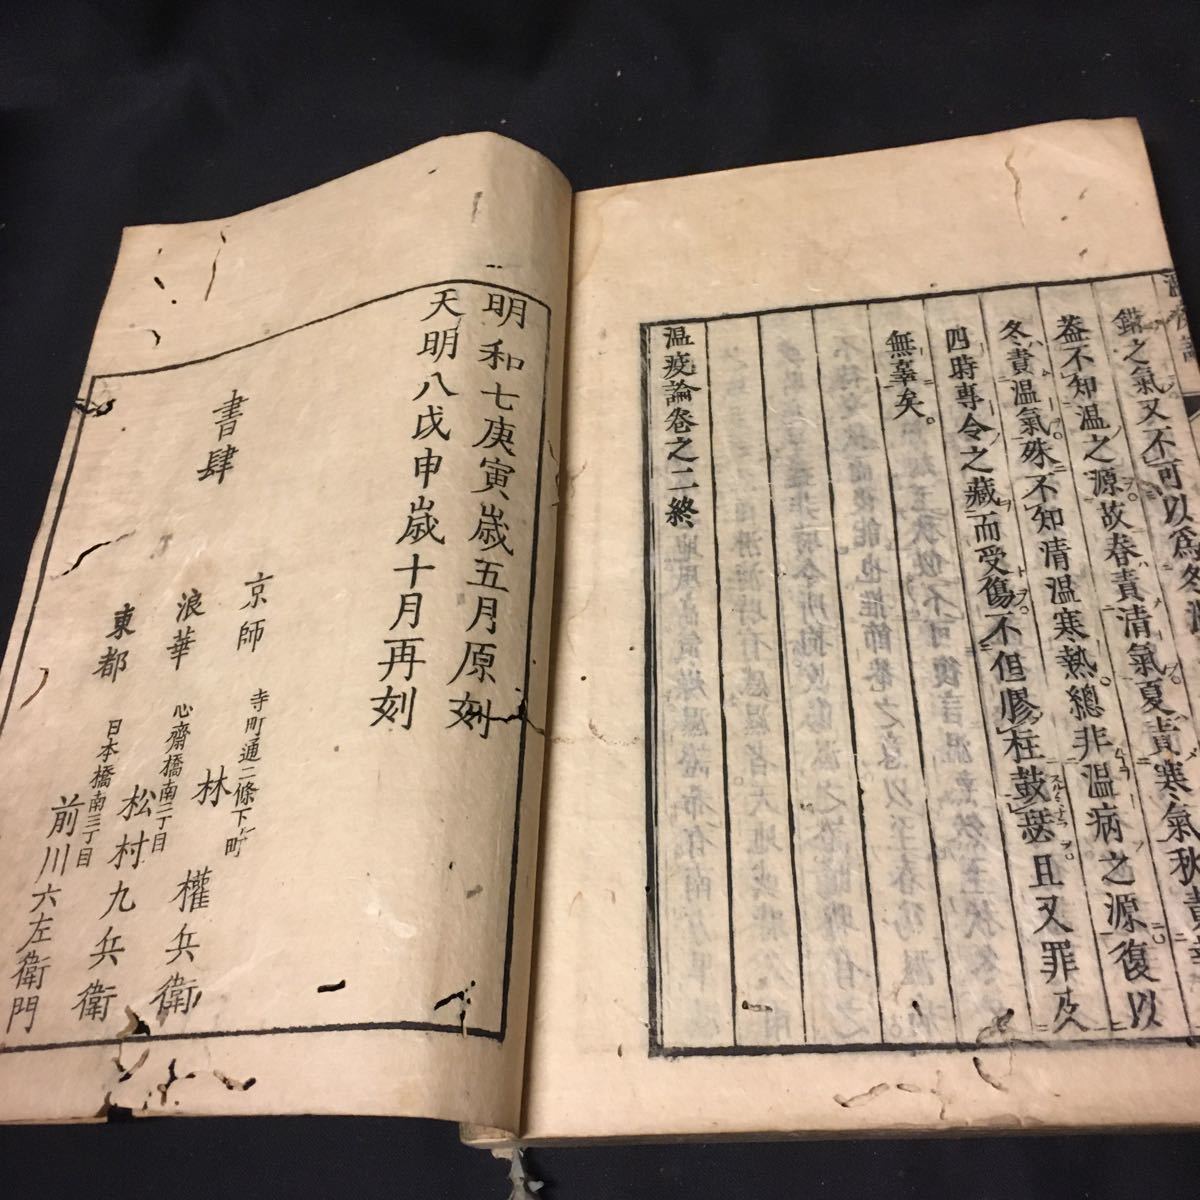 錯之氣又不可以爲冬
蓋不知温之源故春責清氣夏責寒氣秋責
冬責温氣殊不知清温寒熱總非温病之源復以
四時專令之藏而受傷不但膠柱鼓瑟且又罪及
無辜矣
温疫論卷之二終
明和七庚寅歳五月原刻
天明八戊申歳十月再刻
書肆
京師 寺町通二條下ル町
林 權兵衛
浪華 心齋橋南二丁目
松村九兵衛
東都 日本橋南三丁目
前川六左衛門